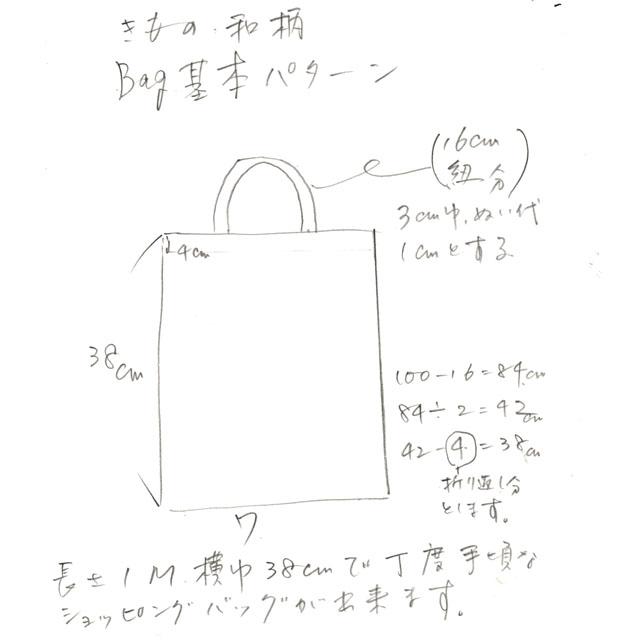 きもの・和柄
Bag基本パターン
(16cm
紐分)
3cm巾、ぬい代
1cmとする
4cm
38cm
100-16=84cm
84÷2=42cm
42-4=38cm
折り返し分
とします。
ワ
長さ1M 横巾38cmで丁度手頃な
ショッピングバッグが出来ます。